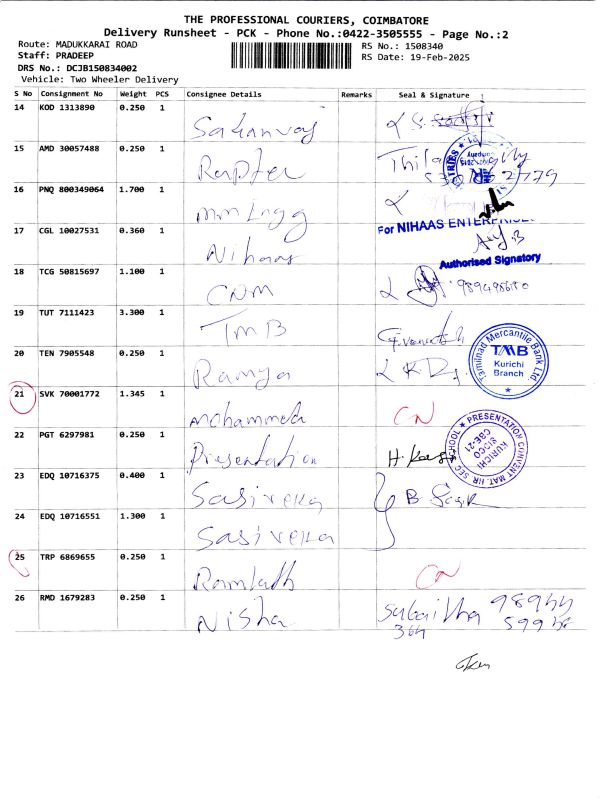 THE PROFESSIONAL COURIERS, COIMBATORE
Delivery Runsheet - PCK - Phone No.:0422-3505555 - Page No.:2
Route: MADUKKARAI ROAD RS No.: 1508340
Staff: PRADEEP RS Date: 19-Feb-2025
DRS No.: DCJB150834002
Vehicle: Two Wheeler Delivery
S No Consignment No Weight PCS Consignee Details Remarks Seal & Signature
14 KOD 1313890 0.250 1
15 AMD 30057488 0.250 1
16 PNQ 800349064 1.700 1
17 CGL 10027531 0.360 1 Nihaas For NIHAAS ENTERPRISES
Authorised Signatory
18 TCG 50815697 1.100 1 CNM
19 TUT 7111423 3.300 1 TMB
Tamilnad Mercantile Bank Ltd. TMB Kurichi Branch
20 TEN 7905548 0.250 1 Ramya
21 SVK 70001772 1.345 1 Mohammed CN
22 PGT 6297981 0.250 1 Presentation
PRESENTATION CONVENT MAT. HR. SEC. SCHOOL KURICHI SIDCO CBE-21
23 EDQ 10716375 0.400 1 Sasireka
24 EDQ 10716551 1.300 1 Sasireka
25 TRP 6869655 0.250 1 CN
26 RMD 1679283 0.250 1 Nisha